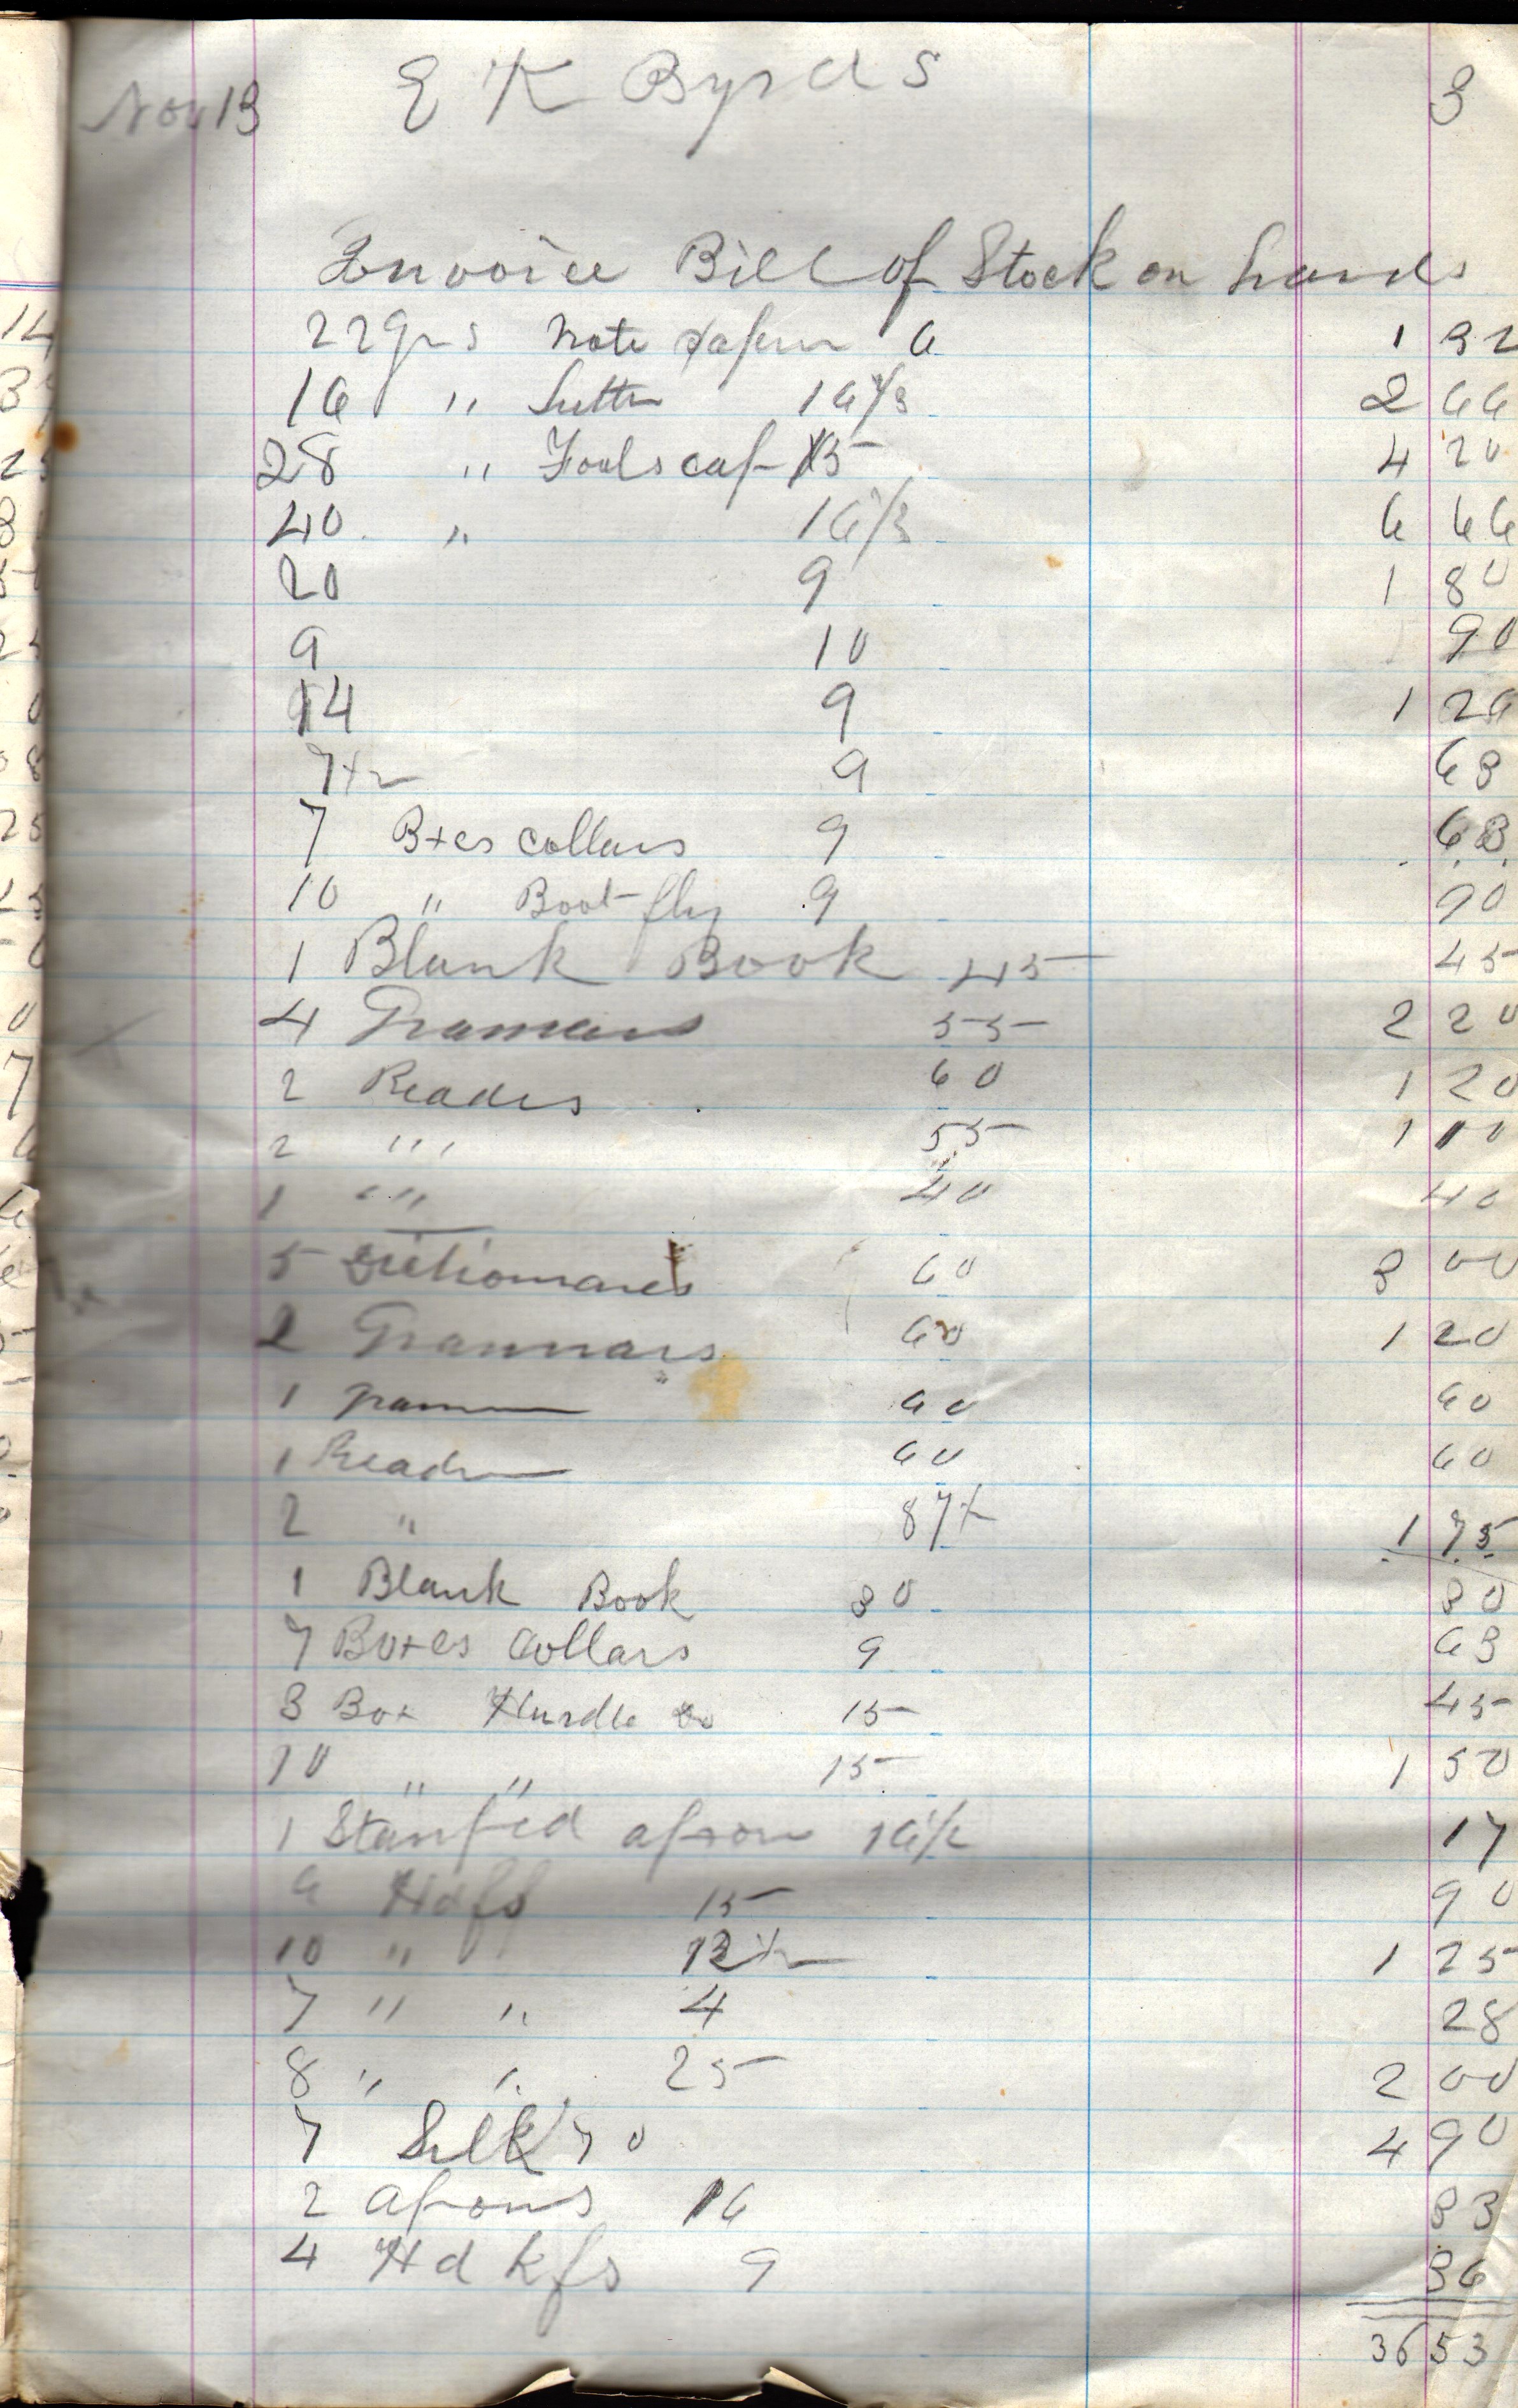 Nov 13 E K Byrds 3
Invoice Bill of Stock on hands
22 qrs Note paper 6 1 32
16 " Letter 16 2/3 2 66
28 " Foolscap 15 4 20
40 " 16 2/3 6 66
20 9 1 80
9 10 90
14 9 1 26
7 9 63
7 Bxes collars 9 63
10 " Boot fly 9 90
1 Blank Book 45 45
4 Gramars 55 2 20
2 Readers 60 1 20
2 " 55 1 10
1 " 40 40
5 Dictionares 60 3 00
2 Grammars 60 1 20
1 Grammer 60 60
1 Reader 60 60
2 " 87½ 1 75
1 Blank Book 30 30
7 Boxes Collars 9 63
3 Box Hurdle do 15 45
10 " " 15 1 50
1 Stamped apron 16½ 17
6 Hdfs 15 90
10 " 12½ 1 25
7 " " 4 28
8 " " 25 2 00
7 Silk 70 4 90
2 aprons 16 33
4 Hdkfs 9 36
36 53